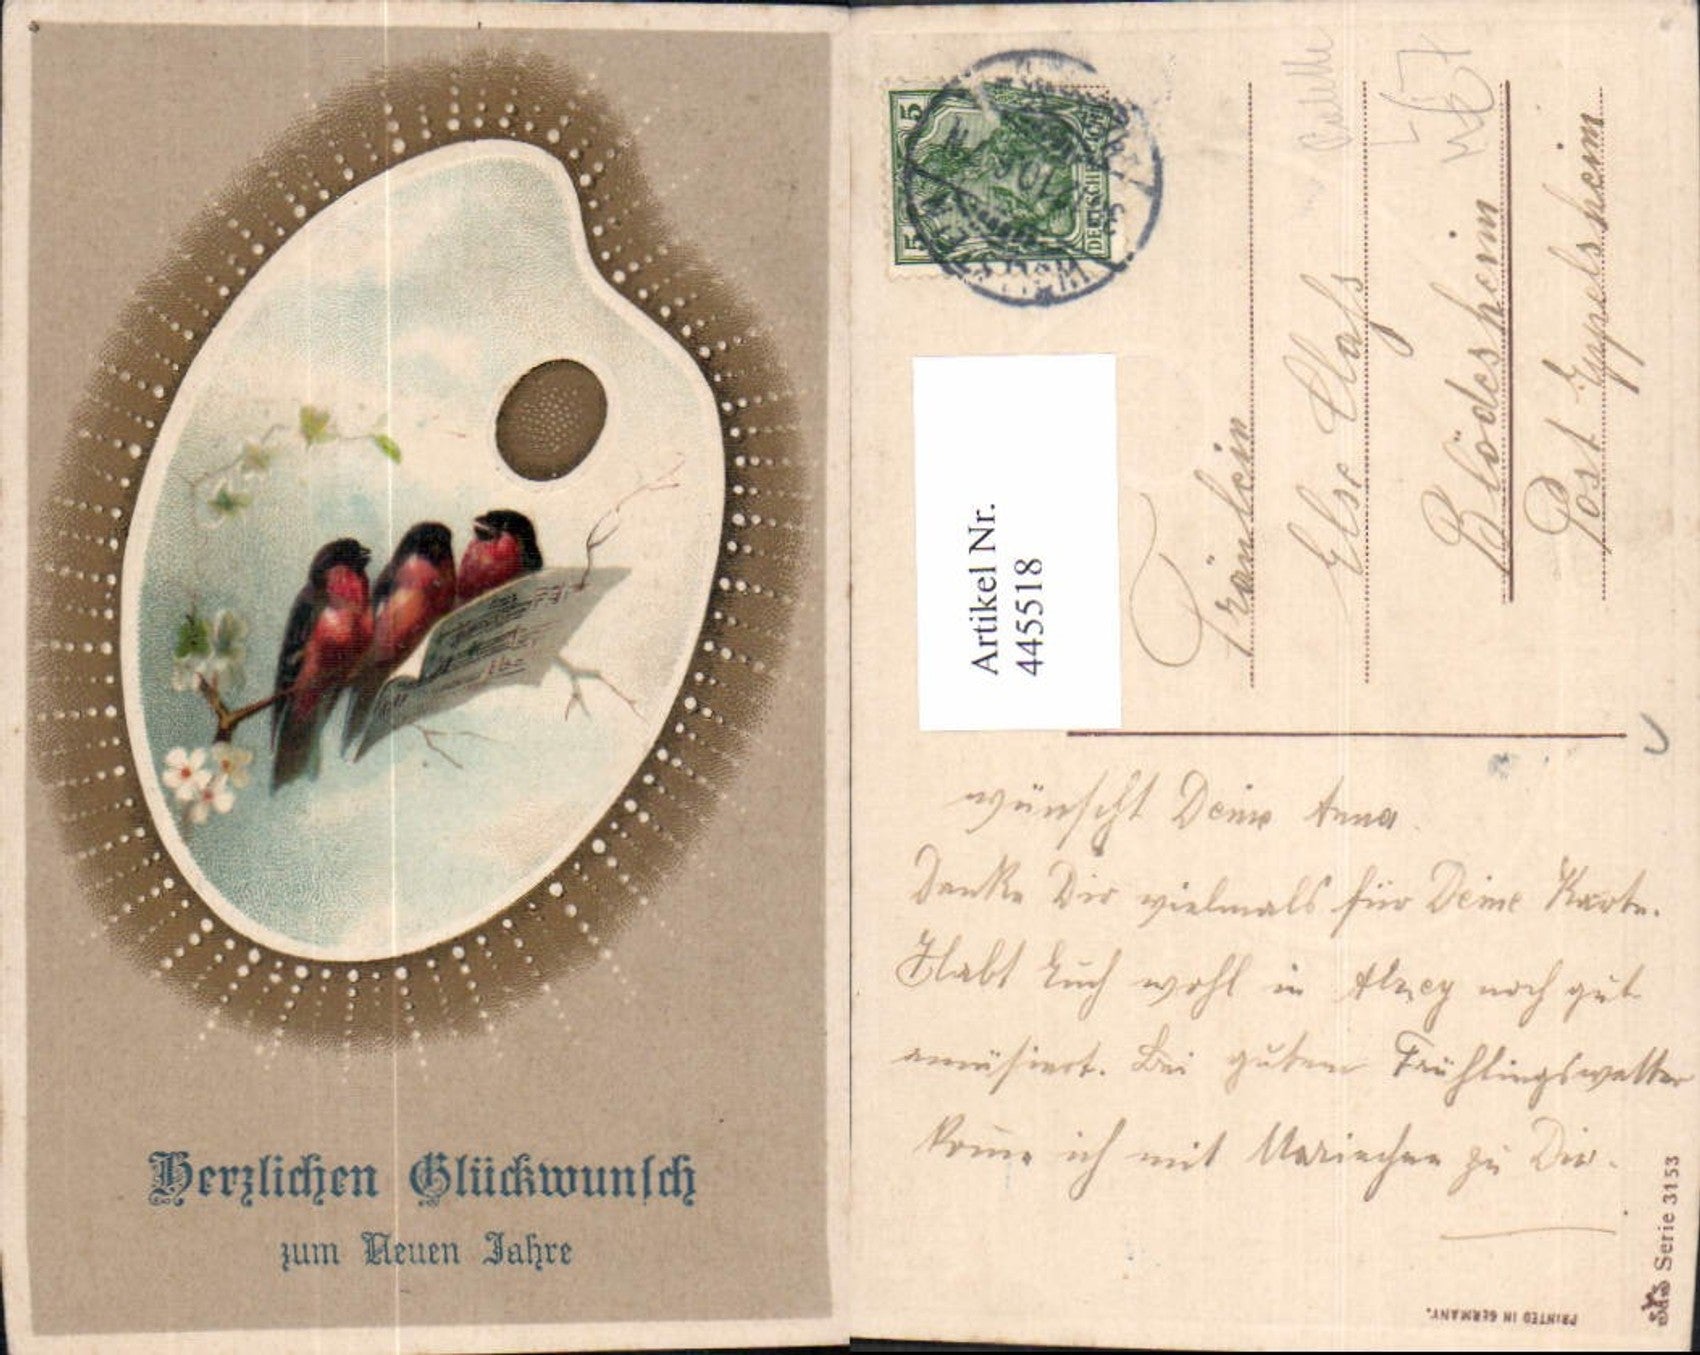 Herzlichen Glückwunsch
zum Neuen Jahre
5
5
DEUTSCHE
Artikel Nr.
445518
Fräulein
Else Claß
Blödesheim
Post Eppelsheim
wünscht Deine Anna.
Danke Dir vielmals für Deine Karte.
Habt Euch wohl in Alzey noch gut
amüsiert. Bei gutem Frühlingswetter
komme ich mit Mariechen zu Dir.
Serie 3153
PRINTED IN GERMANY.